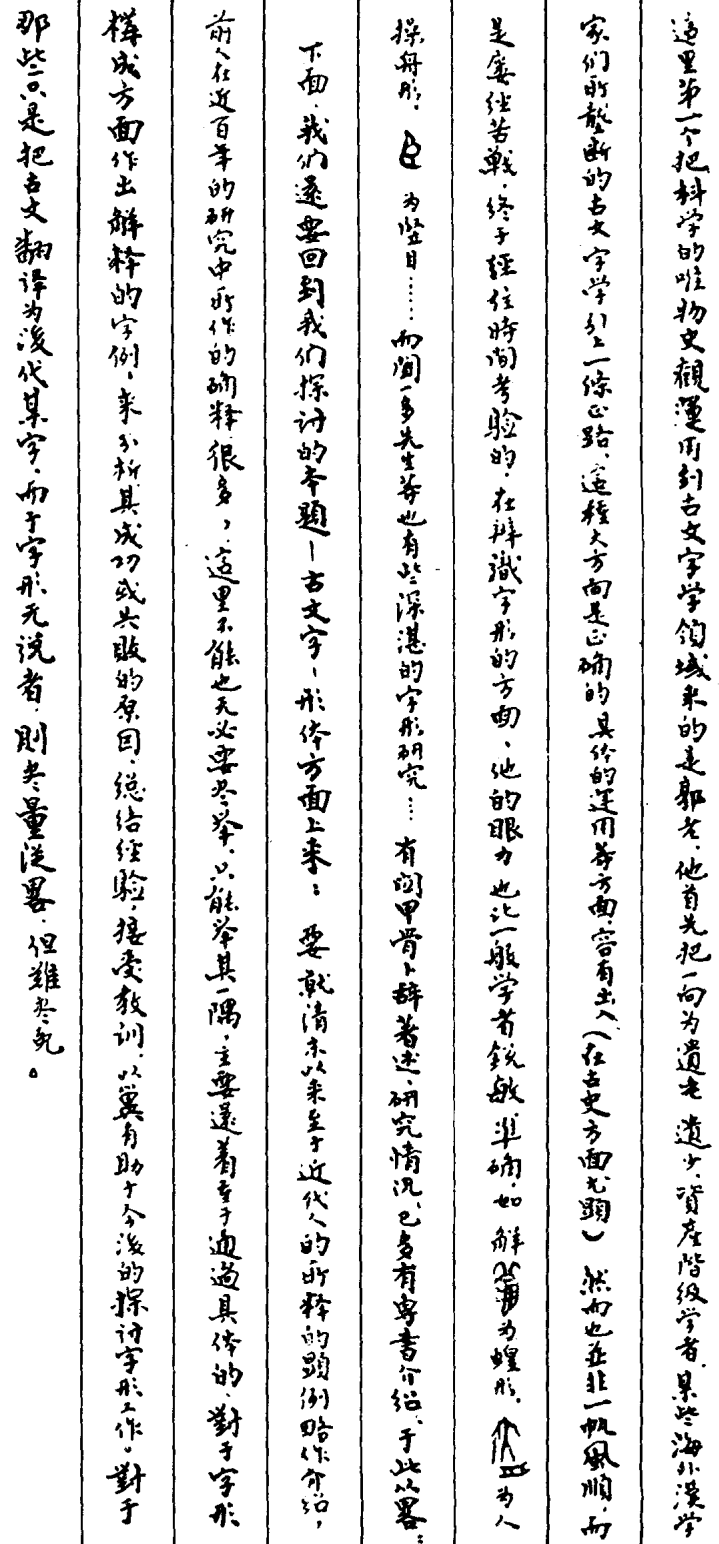 這里第一个把科学的唯物史觀運用到古文字学領域来的是郭老，他首先把一向为遺老遺少，資產階級学者，某些海外漢学
家们所壟断的古文字学引上一條正路，這種大方向是正确的，具体的运用等方面，容有出入（在古史方面尤顯）然而也並非一帆風順，而
是屡经苦戰，终于經住時间考验的，在辨識字形的方面，他的眼力也比一般学者鋭敏準确，如解为蝗形，为人
操舟形，为竖目……而闻一多先生等也有些深湛的字形研究…有関甲骨卜辞著述、研究情况，已多有專書介绍，于此从畧：
下面，我们還要回到我们探讨的本題—古文字—形体方面上来：要就清末以来至于近代人的所释的顯例略作介绍，
前人在近百年的研究中所作的确释很多，這里不能也无必要尽举，只能举其一隅，主要還着重于通過具体的，對于字形
構成方面作出解释的字例，来分析其成功或失敗的原因，总结经验，接受教训，以冀有助于今後的探讨字形工作，對于
那些只是把古文翻译为後代某字，而于字形无说者，則尽量從畧，但難尽免。